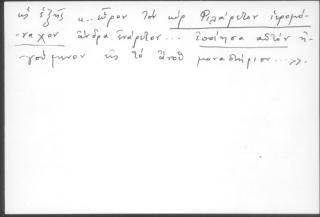 ὡς ἑξῆς «..εὗρον τὸν κὺρ Φιλάρετον ἱερομό-
-ναχον ἄνδρα ἐνάρετον... ἐποίησα αὐτὸν ἡ-
-γούμενον εἰς τὸ ἄνωθ μοναστήριον...».